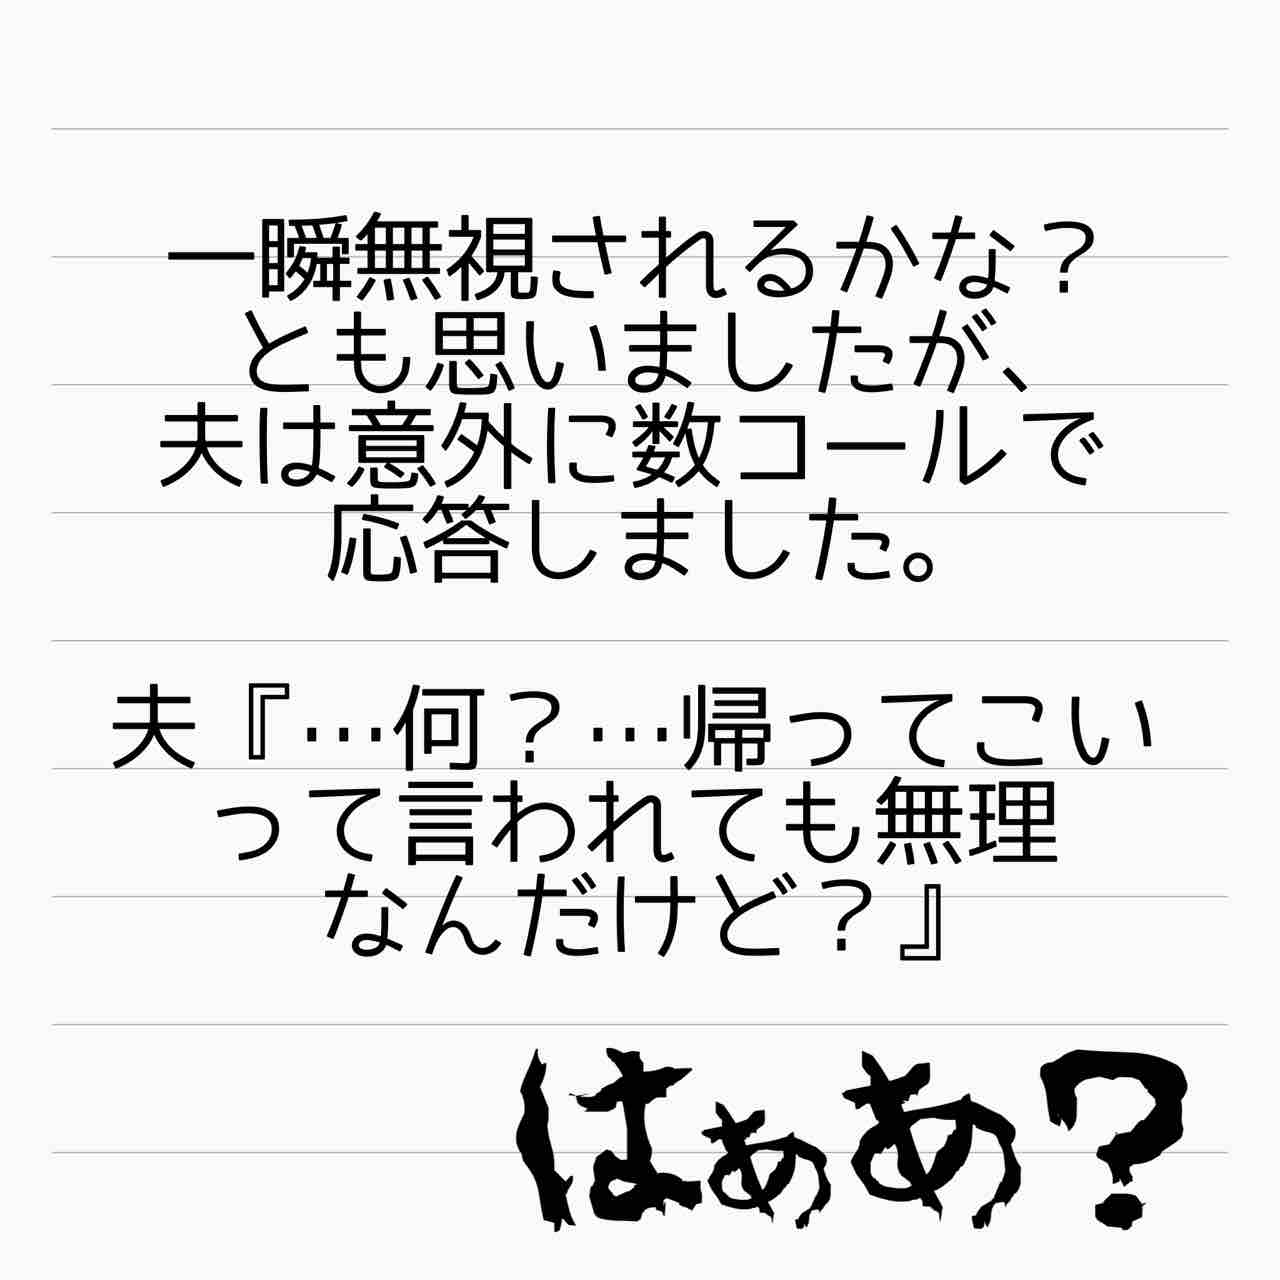 一瞬無視されるかな？
とも思いましたが、
夫は意外に数コールで
応答しました。
夫『…何？…帰ってこい
って言われても無理
なんだけど？』
はぁあ？